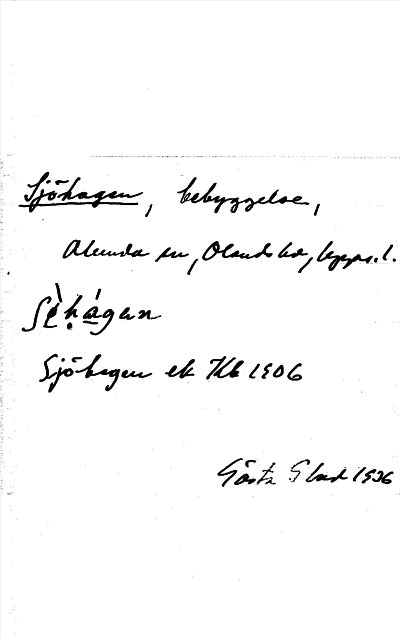 Sjöhagen, bebyggelse,
Alunda sn, Olands hd, Upps. l.
Sjöhagen ek Kb 1906
Gösta Blad 1936